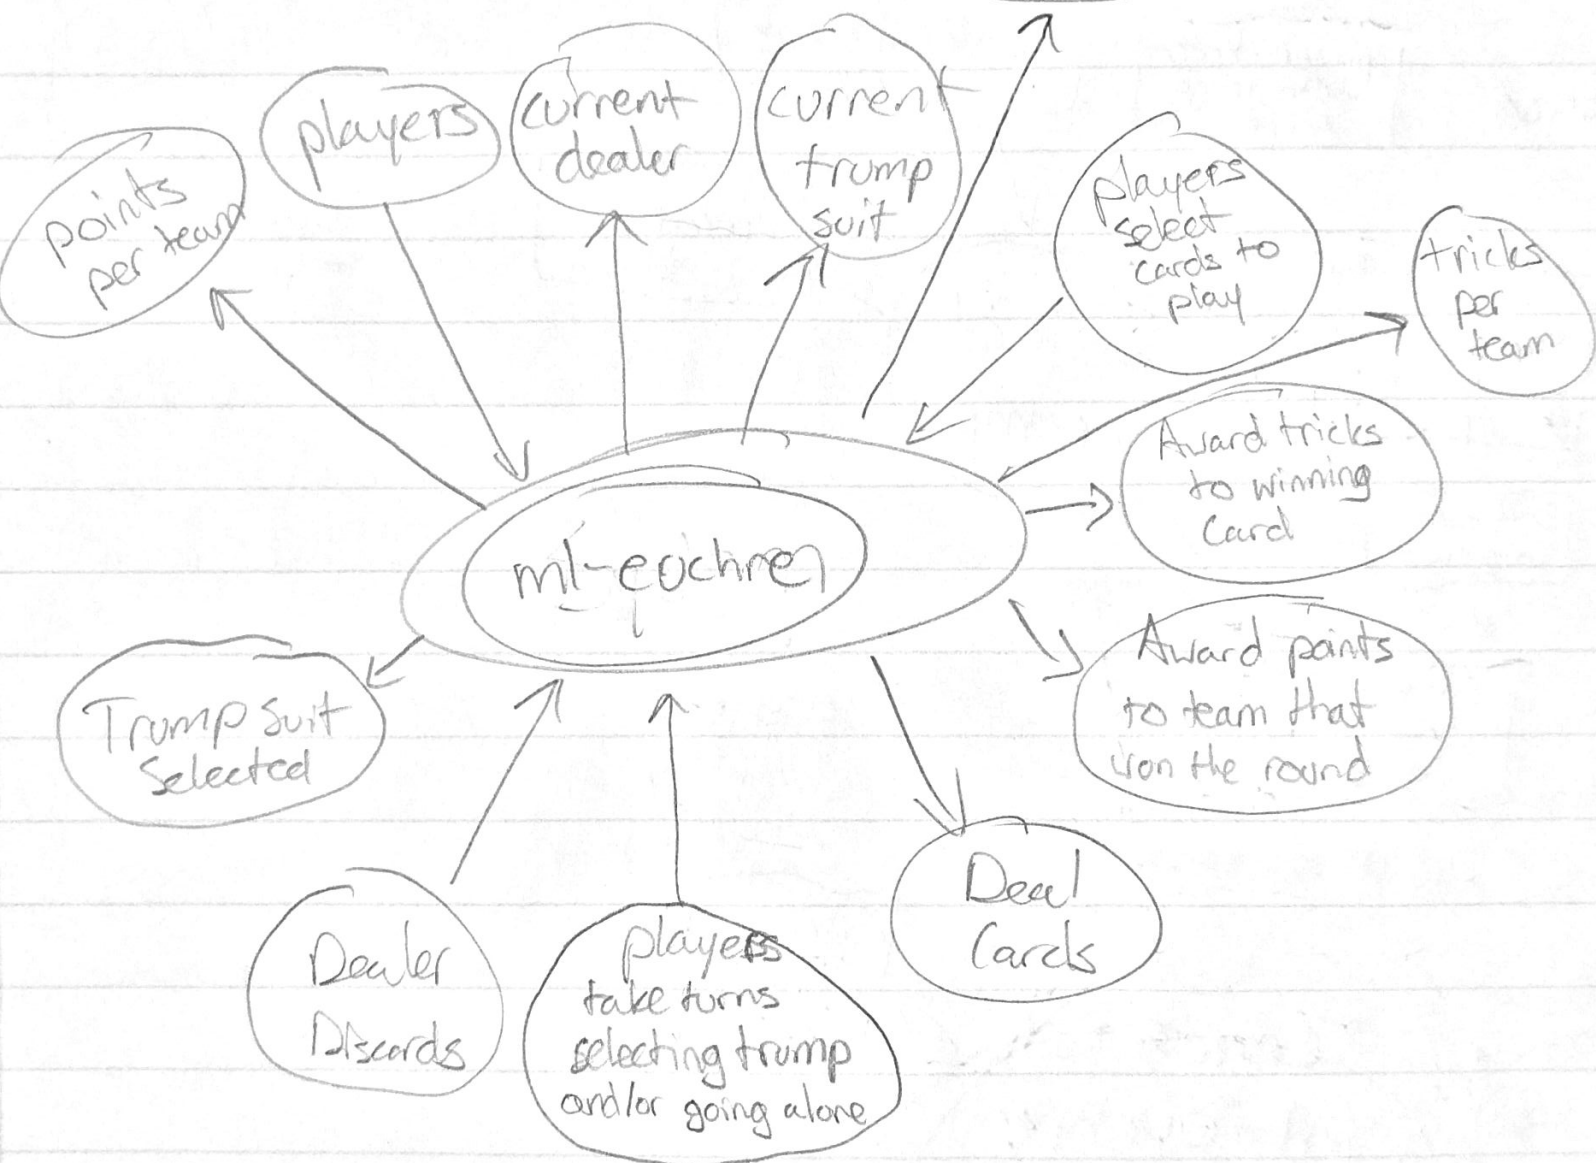 players
current
dealer
current
trump
suit
points
per team
players
select
cards to
play
tricks
per
team
Award tricks
to winning
Card
ml-euchre
Award points
to team that
won the round
Trump suit
Selected
Deal
Cards
Dealer
Discards
players
take turns
selecting trump
and/or going alone